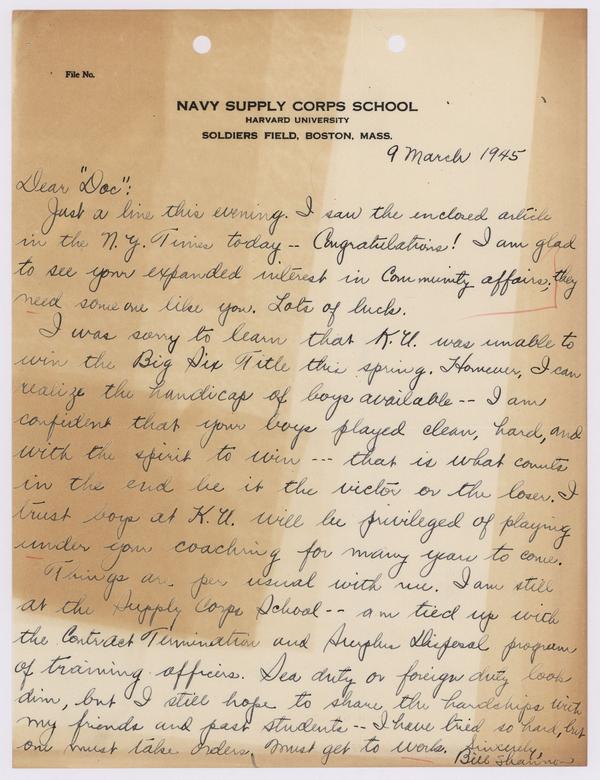 File No.
NAVY SUPPLY CORPS SCHOOL
HARVARD UNIVERSITY
SOLDIERS FIELD, BOSTON, MASS.
9 March 1945
Dear "Doc":
Just a line this evening. I saw the enclosed article
in the N.Y. Times today -- Congratulations! I am glad
to see your expanded interest in Community affairs; they
need some one like you. Lots of luck.
I was sorry to learn that K.U. was unable to
win the Big Six Title this spring. However, I can
realize the handicap of boys available -- I am
confident that your boys played clean, hard, and
with the spirit to win --- that is what counts
in the end be it the victor or the loser. I
trust boys at K.U. will be privileged of playing
under your coaching for many years to come.
Things are per usual with me. I am still
at the Supply Corps School -- am tied up with
the Contract Termination and Surplus Disposal program
of training officers. Sea duty or foreign duty look
dim, but I still hope to share the hardships with
my friends and past students -- I have tried so hard, but
one must take orders, Must get to work. Sincerely,
Bill Shannon